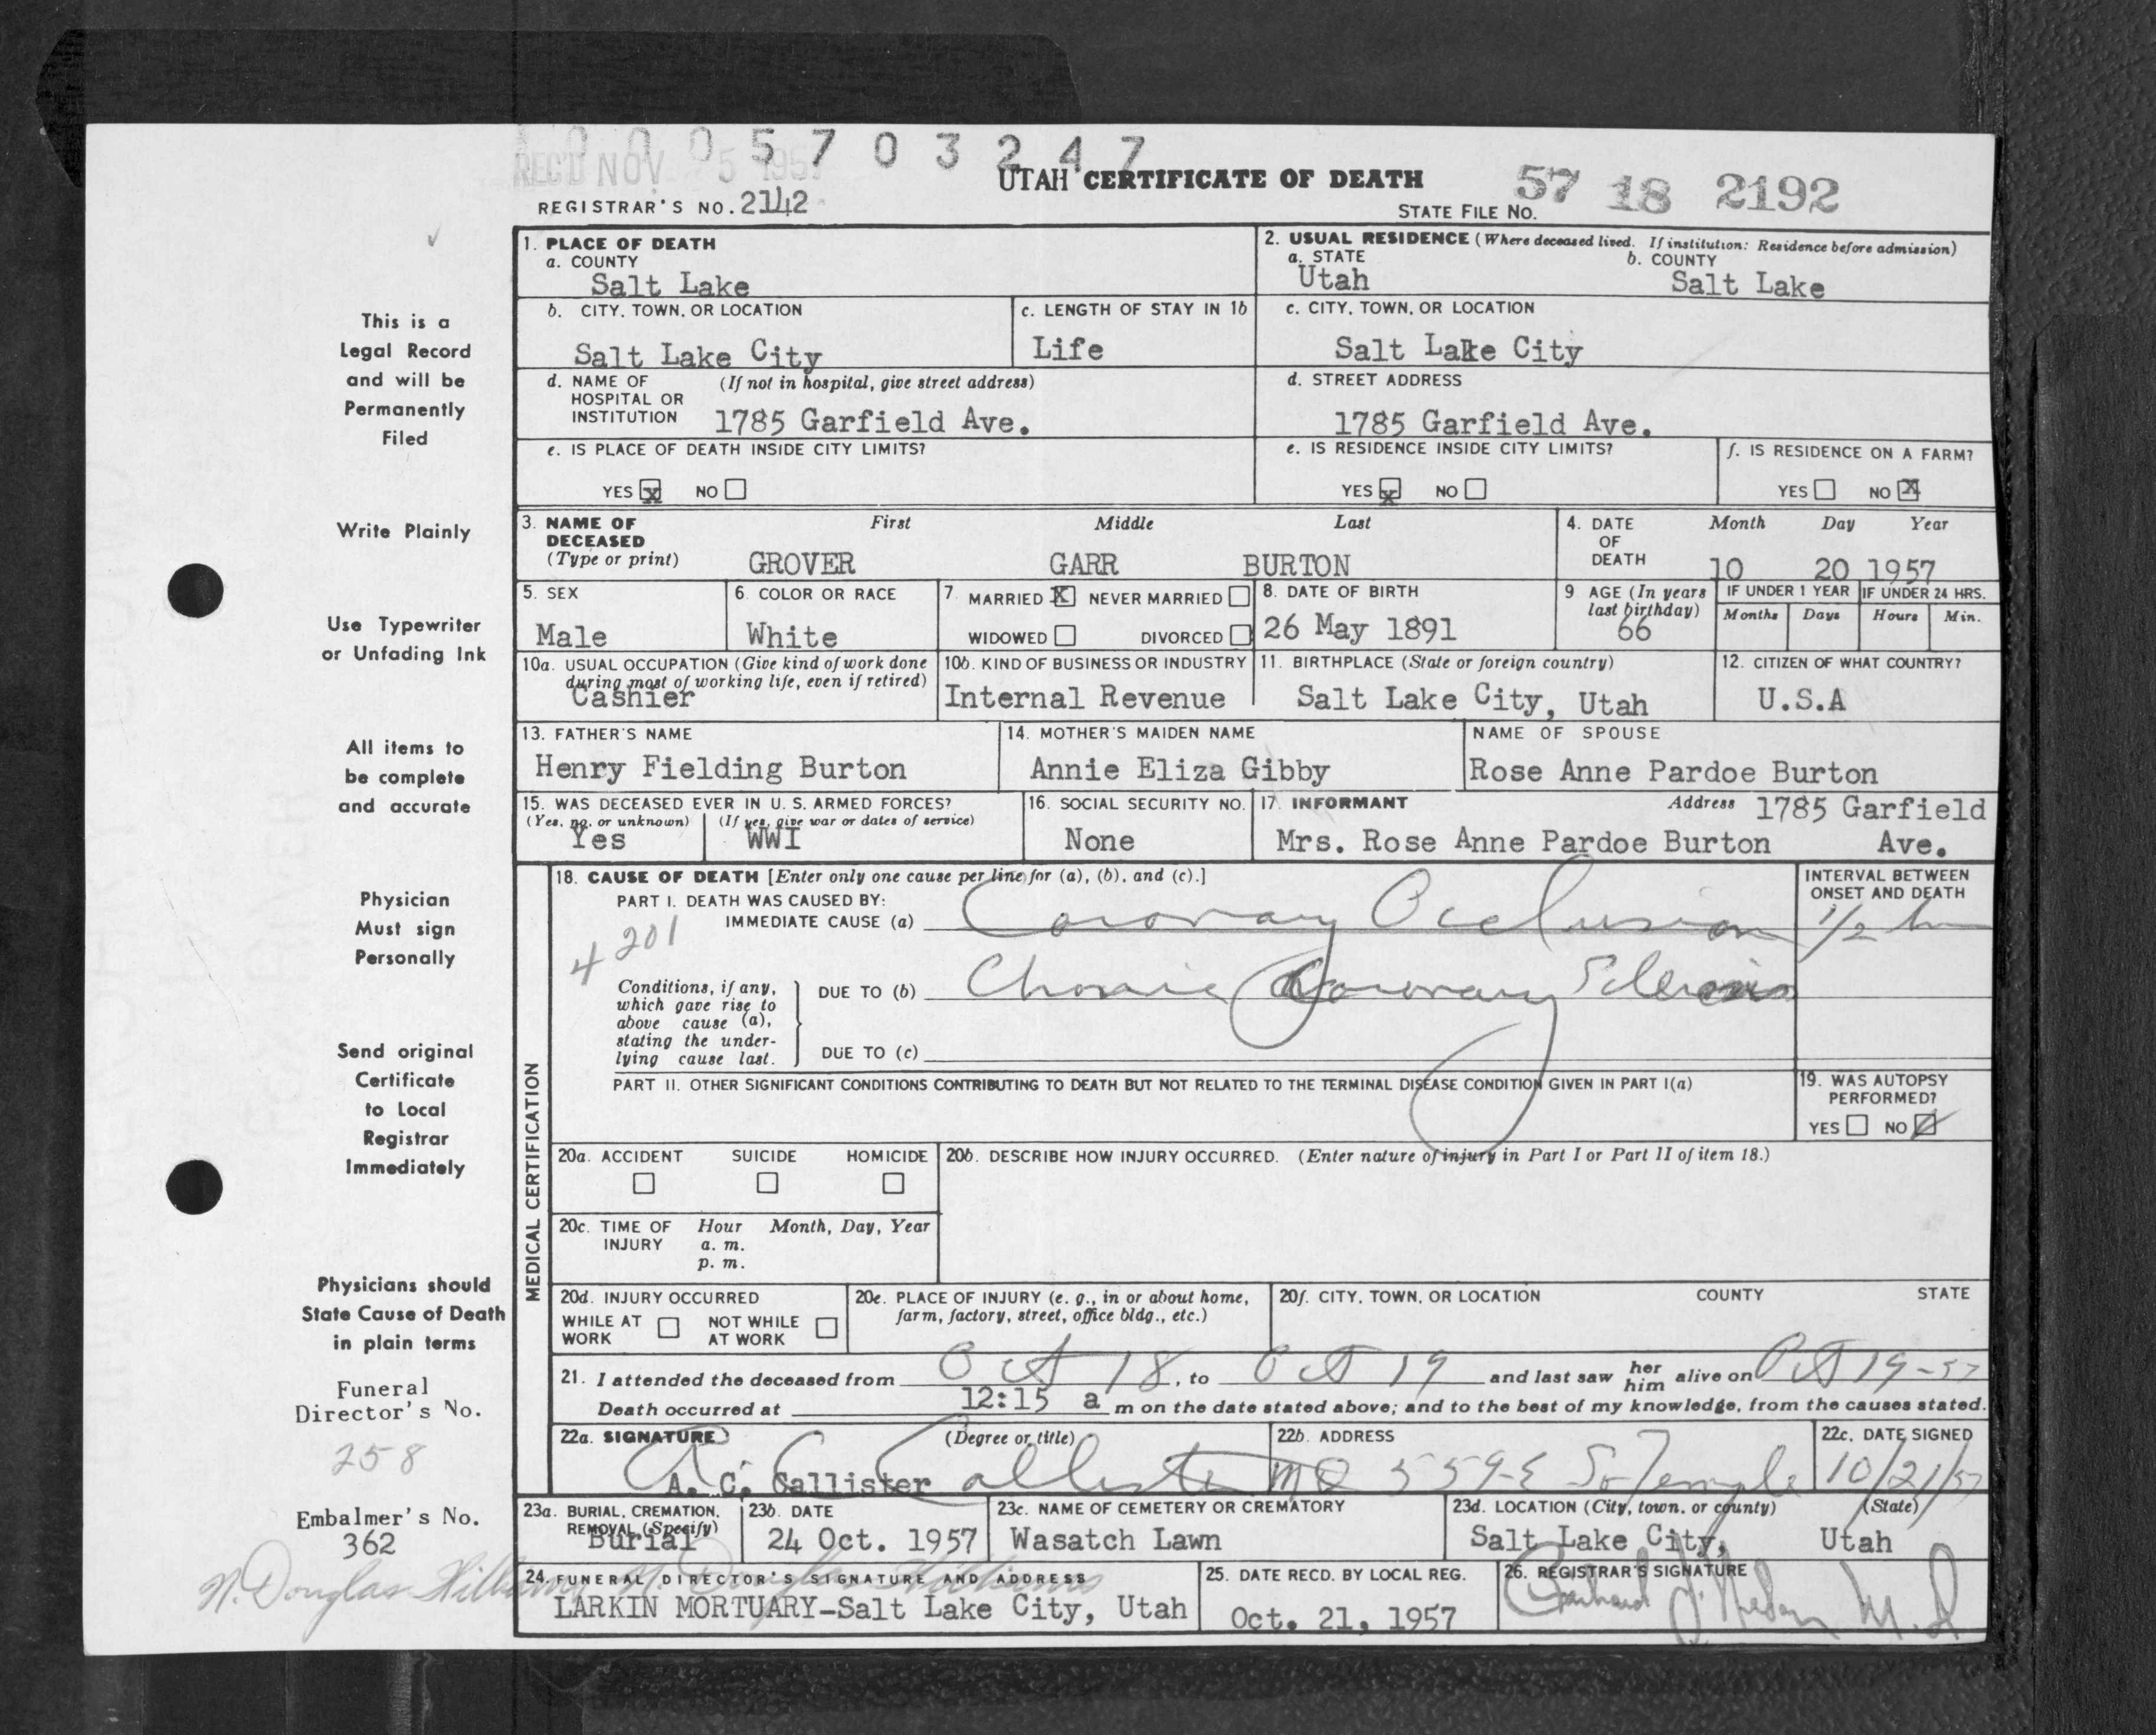 0005703247
REC'D NOV 5 1957
UTAH CERTIFICATE OF DEATH
REGISTRAR'S NO. 2142
STATE FILE NO. 57 18 2192
This is a
Legal Record
and will be
Permanently
Filed
Write Plainly
Use Typewriter
or Unfading Ink
All items to
be complete
and accurate
Physician
Must sign
Personally
Send original
Certificate
to Local
Registrar
Immediately
Physicians should
State Cause of Death
in plain terms
Funeral
Director's No.
258
Embalmer's No.
362
N. Douglas
1. PLACE OF DEATH
a. COUNTY
Salt Lake
2. USUAL RESIDENCE (Where deceased lived. If institution: Residence before admission)
a. STATE
Utah
b. COUNTY
Salt Lake
b. CITY, TOWN, OR LOCATION
Salt Lake City
c. LENGTH OF STAY IN 1b
Life
c. CITY, TOWN, OR LOCATION
Salt Lake City
d. NAME OF HOSPITAL OR INSTITUTION (If not in hospital, give street address)
1785 Garfield Ave.
d. STREET ADDRESS
1785 Garfield Ave.
e. IS PLACE OF DEATH INSIDE CITY LIMITS?
YES x NO
e. IS RESIDENCE INSIDE CITY LIMITS?
YES x NO
f. IS RESIDENCE ON A FARM?
YES NO X
3. NAME OF DECEASED (Type or print)
First Middle Last
GROVER GARR BURTON
4. DATE OF DEATH
Month Day Year
10 20 1957
5. SEX
Male
6. COLOR OR RACE
White
7. MARRIED X NEVER MARRIED
WIDOWED DIVORCED
8. DATE OF BIRTH
26 May 1891
9 AGE (In years last birthday)
66
IF UNDER 1 YEAR
Months Days
IF UNDER 24 HRS.
Hours Min.
10a. USUAL OCCUPATION (Give kind of work done during most of working life, even if retired)
Cashier
10b. KIND OF BUSINESS OR INDUSTRY
Internal Revenue
11. BIRTHPLACE (State or foreign country)
Salt Lake City, Utah
12. CITIZEN OF WHAT COUNTRY?
U.S.A
13. FATHER'S NAME
Henry Fielding Burton
14. MOTHER'S MAIDEN NAME
Annie Eliza Gibby
NAME OF SPOUSE
Rose Anne Pardoe Burton
15. WAS DECEASED EVER IN U. S. ARMED FORCES?
(Yes, no, or unknown) (If yes, give war or dates of service)
Yes WWI
16. SOCIAL SECURITY NO.
None
17. INFORMANT Address 1785 Garfield
Mrs. Rose Anne Pardoe Burton Ave.
MEDICAL CERTIFICATION
18. CAUSE OF DEATH [Enter only one cause per line for (a), (b), and (c).]
PART I. DEATH WAS CAUSED BY:
IMMEDIATE CAUSE (a) Coronary Occlusion
INTERVAL BETWEEN
ONSET AND DEATH
1/2 hr
4201
Conditions, if any,
which gave rise to
above cause (a),
stating the under-
lying cause last.
DUE TO (b) Chronic Coronary Sclerosis
DUE TO (c)
PART II. OTHER SIGNIFICANT CONDITIONS CONTRIBUTING TO DEATH BUT NOT RELATED TO THE TERMINAL DISEASE CONDITION GIVEN IN PART I(a)
19. WAS AUTOPSY
PERFORMED?
YES NO
20a. ACCIDENT SUICIDE HOMICIDE
20b. DESCRIBE HOW INJURY OCCURRED. (Enter nature of injury in Part I or Part II of item 18.)
20c. TIME OF INJURY Hour Month, Day, Year
a. m.
p. m.
20d. INJURY OCCURRED
WHILE AT WORK NOT WHILE AT WORK
20e. PLACE OF INJURY (e. g., in or about home,
farm, factory, street, office bldg., etc.)
20f. CITY, TOWN, OR LOCATION COUNTY STATE
21. I attended the deceased from Oct 18, to Oct 19 and last saw her him alive on Oct 19-57
Death occurred at 12:15 a m on the date stated above; and to the best of my knowledge, from the causes stated.
22a. SIGNATURE (Degree or title)
A. C. Callister MD
A. C. Callister
22b. ADDRESS
559-E So Temple
22c. DATE SIGNED
10/21/57
23a. BURIAL, CREMATION, REMOVAL (Specify)
Burial
23b. DATE
24 Oct. 1957
23c. NAME OF CEMETERY OR CREMATORY
Wasatch Lawn
23d. LOCATION (City, town, or county) (State)
Salt Lake City, Utah
24. FUNERAL DIRECTOR'S SIGNATURE AND ADDRESS
LARKIN MORTUARY-Salt Lake City, Utah
25. DATE RECD. BY LOCAL REG.
Oct. 21, 1957
26. REGISTRAR'S SIGNATURE
M.D.